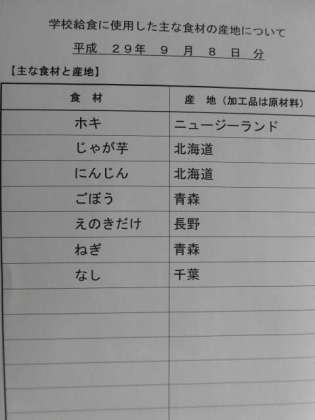 学校給食に使用した主な食材の産地について
平成 29年 9月 8日 分
【主な食材と産地】
食 材 産 地（加工品は原材料）
ホキ ニュージーランド
じゃが芋 北海道
にんじん 北海道
ごぼう 青森
えのきだけ 長野
ねぎ 青森
なし 千葉